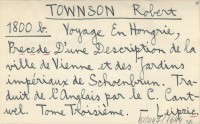 TOWNSON Robert
1800 b. Voyage En Hongrie,
Precede D'une Description de la
ville de Vienne et des Jardins
impériaux de Schoenbrun. Tra-
duit de l'Anglais par le C. Cant-
wel. Tome Troisième. - Leipzic,